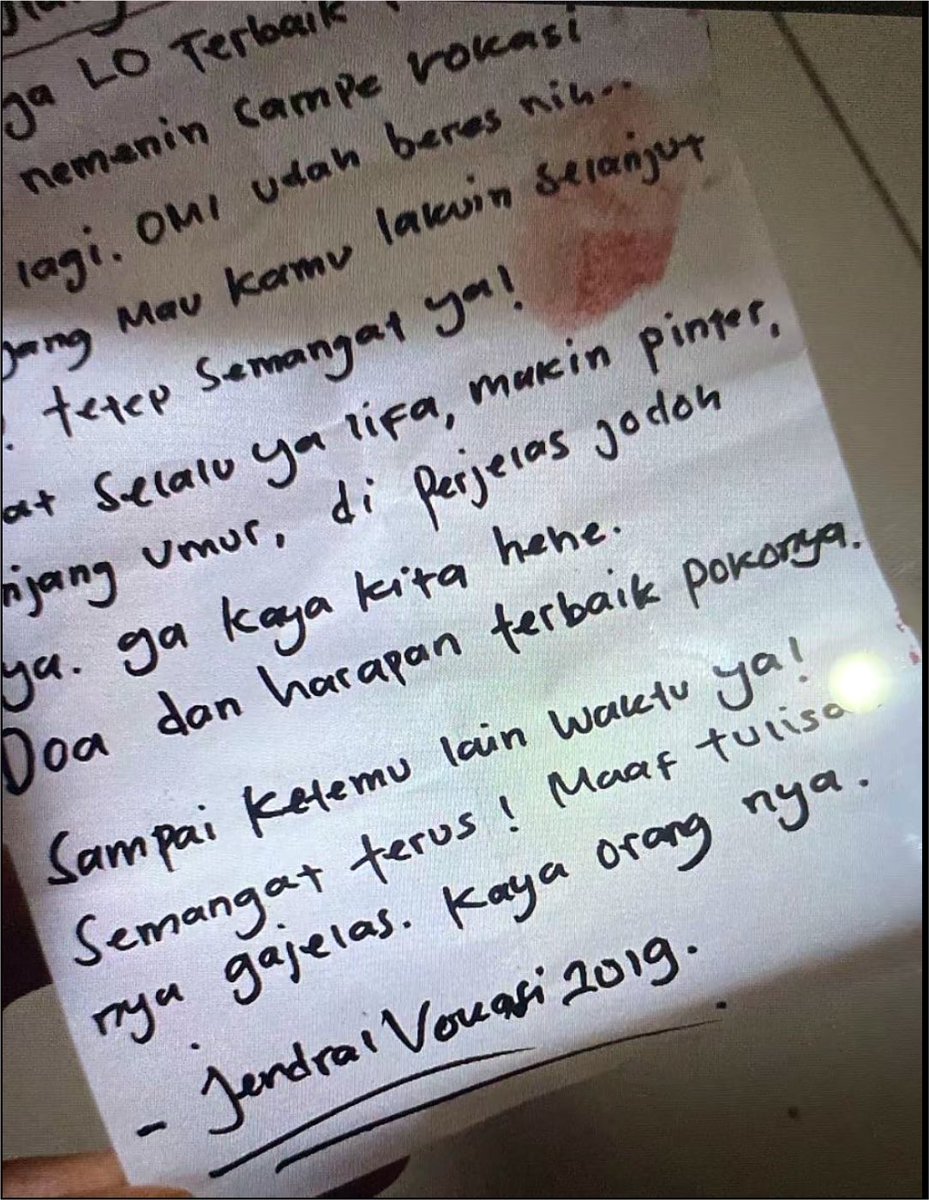 ga LO Terbaik
nemenin sampe vokasi
lagi. OMI udah beres nih..
yang mau kamu lakuin selanjut
! tetep semangat ya!
at selalu ya lifa, makin pinter,
njang umur, di perjelas jodoh
ya. ga kaya kita hehe.
Doa dan harapan terbaik pokonya.
Sampai ketemu lain waktu ya!
Semangat terus! Maaf tulisa
nya gajelas. Kaya orang nya.
- Jendral Vokasi 2019.